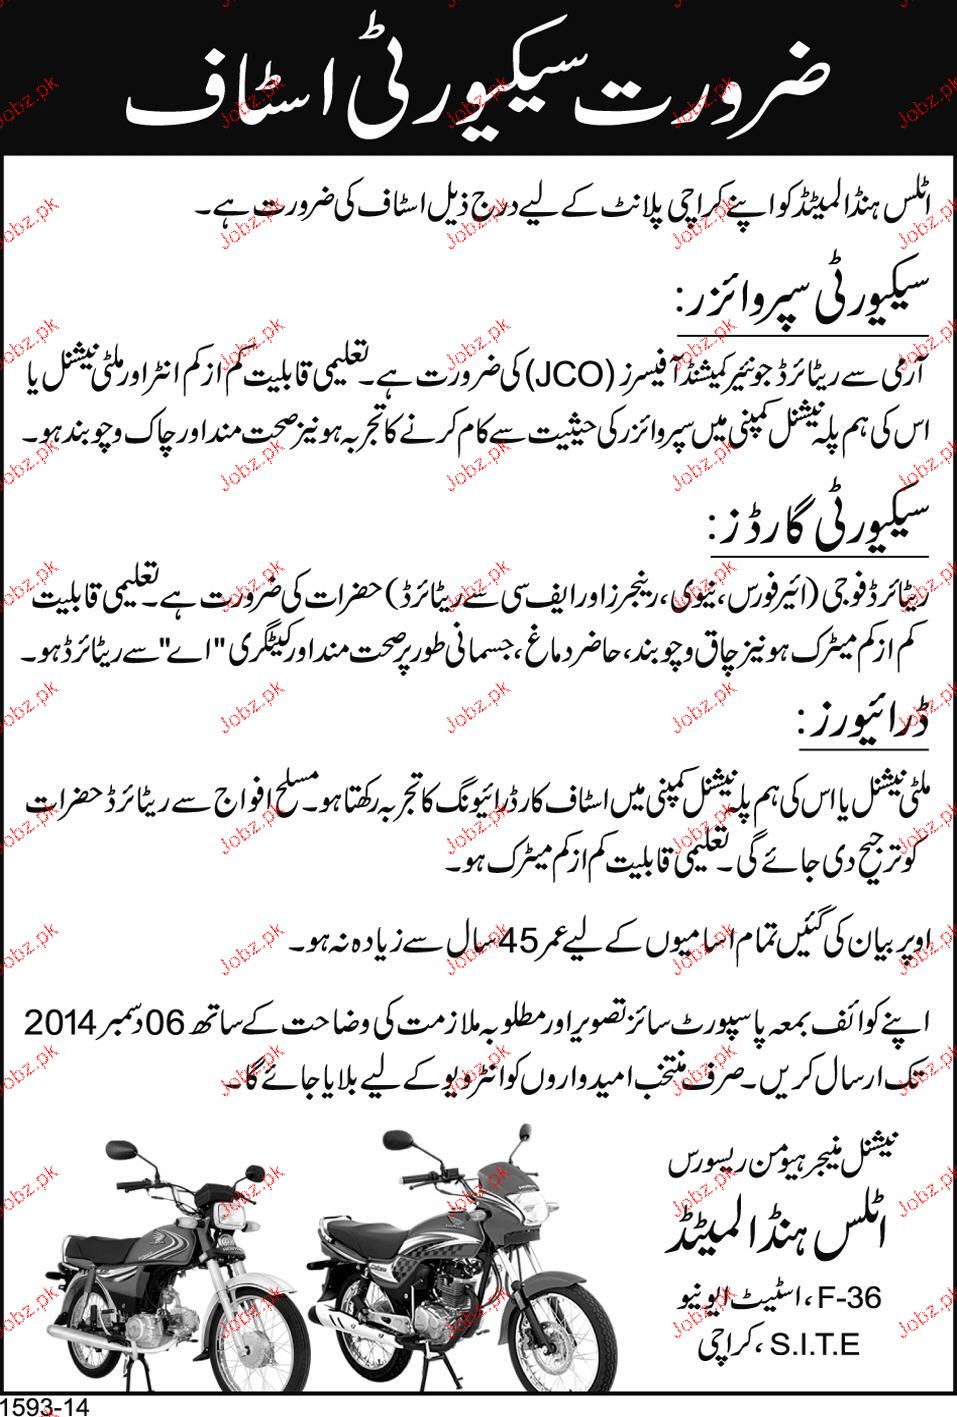 ضرورت سیکیورٹی اسٹاف
اٹلس ہنڈا لمیٹڈ کو اپنے کراچی پلانٹ کے لیے درج ذیل اسٹاف کی ضرورت ہے۔
سیکیورٹی سپروائزر:
آرمی سے ریٹائرڈ جونیئر کمیشنڈ آفیسرز (JCO) کی ضرورت ہے۔ تعلیمی قابلیت کم از کم انٹر اور ملٹی نیشنل یا
اس کی ہم پلہ نیشنل کمپنی میں سپروائزر کی حیثیت سے کام کرنے کا تجربہ ہو نیز صحت مند اور چاک و چوبند ہو۔
سیکیورٹی گارڈز:
ریٹائرڈ فوجی (ائیرفورس، نیوی، رینجرز اور ایف سی سے ریٹائرڈ) حضرات کی ضرورت ہے۔ تعلیمی قابلیت
کم از کم میٹرک ہو نیز چاق و چوبند، حاضر دماغ، جسمانی طور پر صحت مند اور کیٹگری "اے" سے ریٹائرڈ ہو۔
ڈرائیورز:
ملٹی نیشنل یا اس کی ہم پلہ نیشنل کمپنی میں اسٹاف کار ڈرائیونگ کا تجربہ رکھتا ہو۔ مسلح افواج سے ریٹائرڈ حضرات
کو ترجیح دی جائے گی۔ تعلیمی قابلیت کم از کم میٹرک ہو۔
اوپر بیان کی گئیں تمام اسامیوں کے لیے عمر 45 سال سے زیادہ نہ ہو۔
اپنے کوائف بمعہ پاسپورٹ سائز تصویر اور مطلوبہ ملازمت کی وضاحت کے ساتھ 06 دسمبر 2014
تک ارسال کریں۔ صرف منتخب امیدواروں کو انٹرویو کے لیے بلایا جائے گا۔
نیشنل منیجر ہیومن ریسورس
اٹلس ہنڈا لمیٹڈ
F-36، اسٹیٹ ایونیو
S.I.T.E، کراچی
1593-14
Jobz.pk